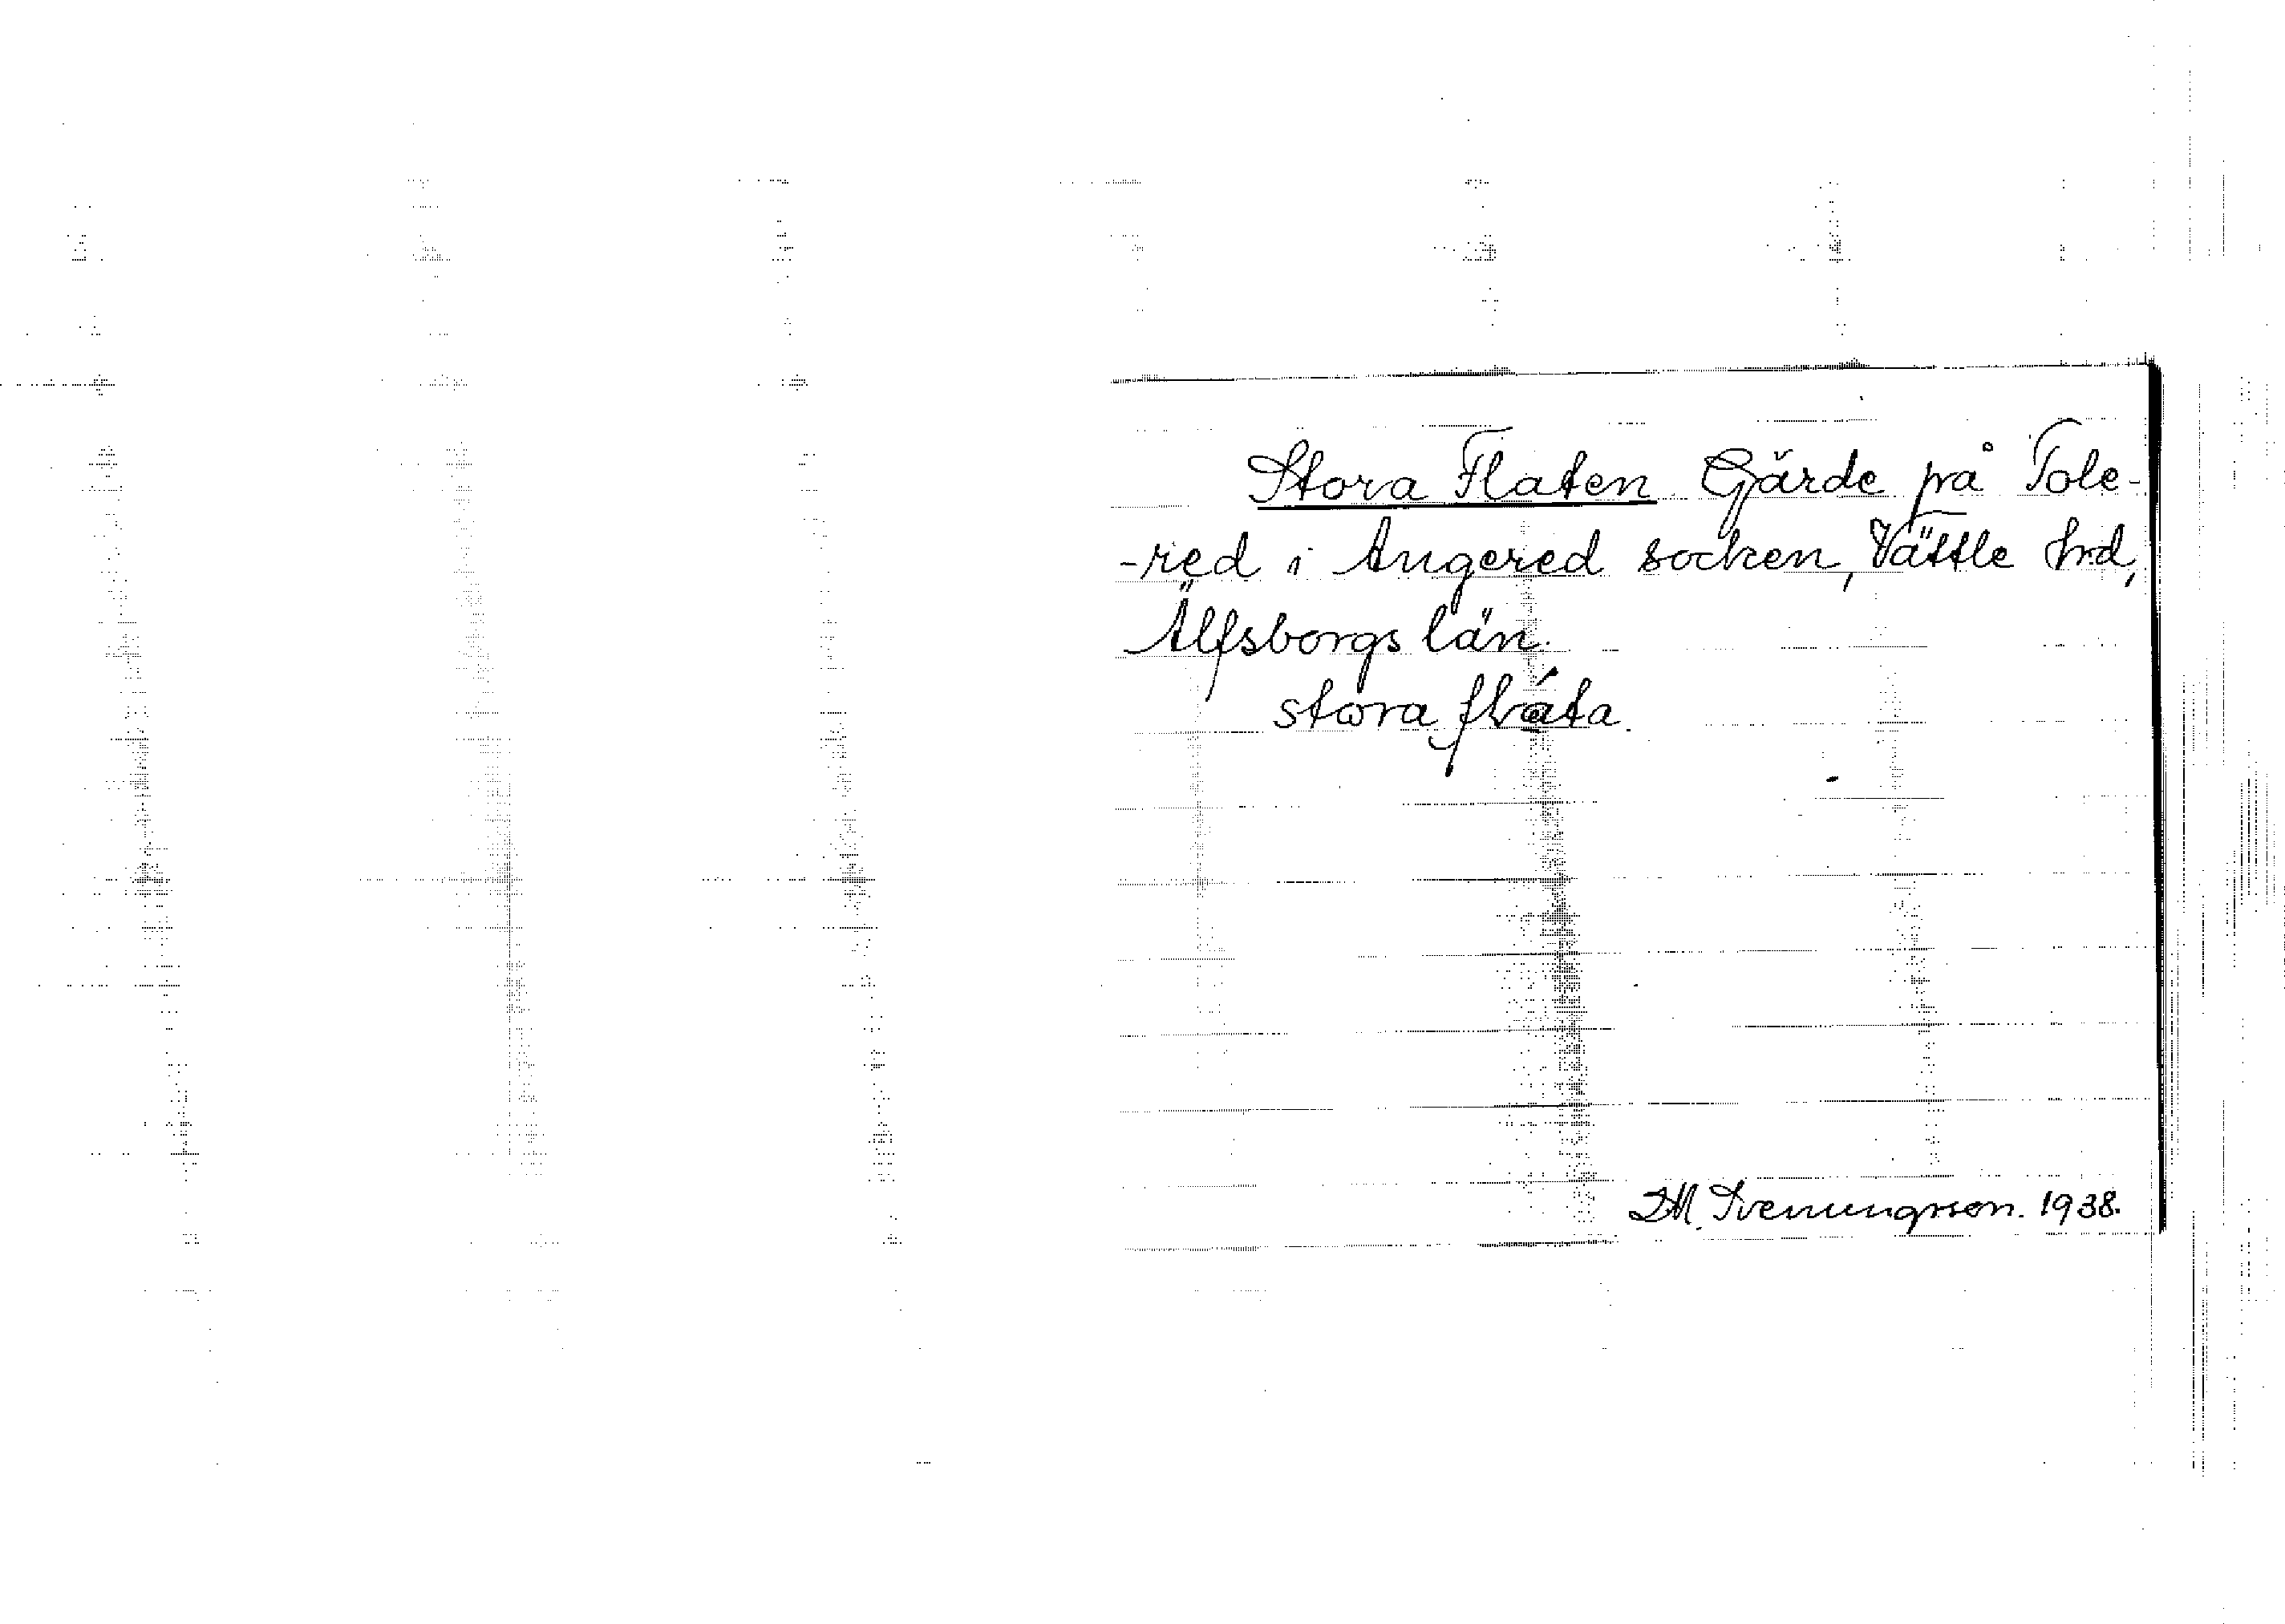 Stora Flaten. Gärde på Tole-
-red i Angered socken, Vättle hrd,
Älfsborgs län.
stora
D.M. Svenungsson. 1938.